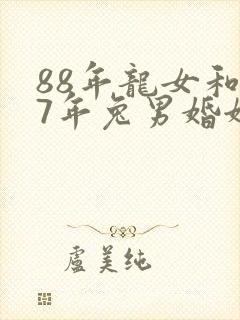 88年龍女和
7年兔男婚
盧美纯